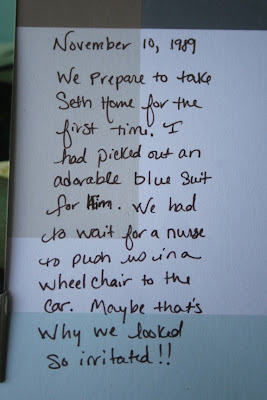 November 10, 1989
We prepare to take
Seth Home for the
first time. I
had picked out an
adorable blue suit
for him. We had
to wait for a nurse
to push us in a
wheelchair to the
car. Maybe that's
why we looked
so irritated!!